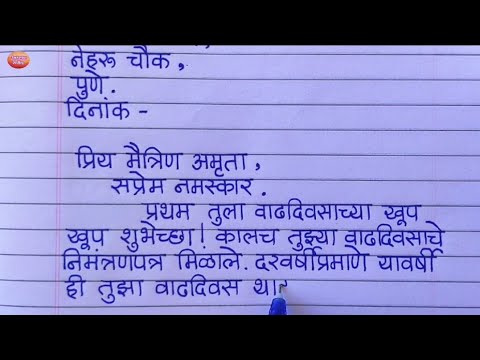 नेहरू चौक,
पुणे.
दिनांक -
प्रिय मैत्रिण अमृता,
सप्रेम नमस्कार.
प्रथम तुला वाढदिवसाच्या खूप
खूप शुभेच्छा! कालच तुझ्या वाढदिवसाचे
निमंत्रणपत्र मिळाले. दरवर्षीप्रमाणे यावर्षी
ही तुझा वाढदिवस था